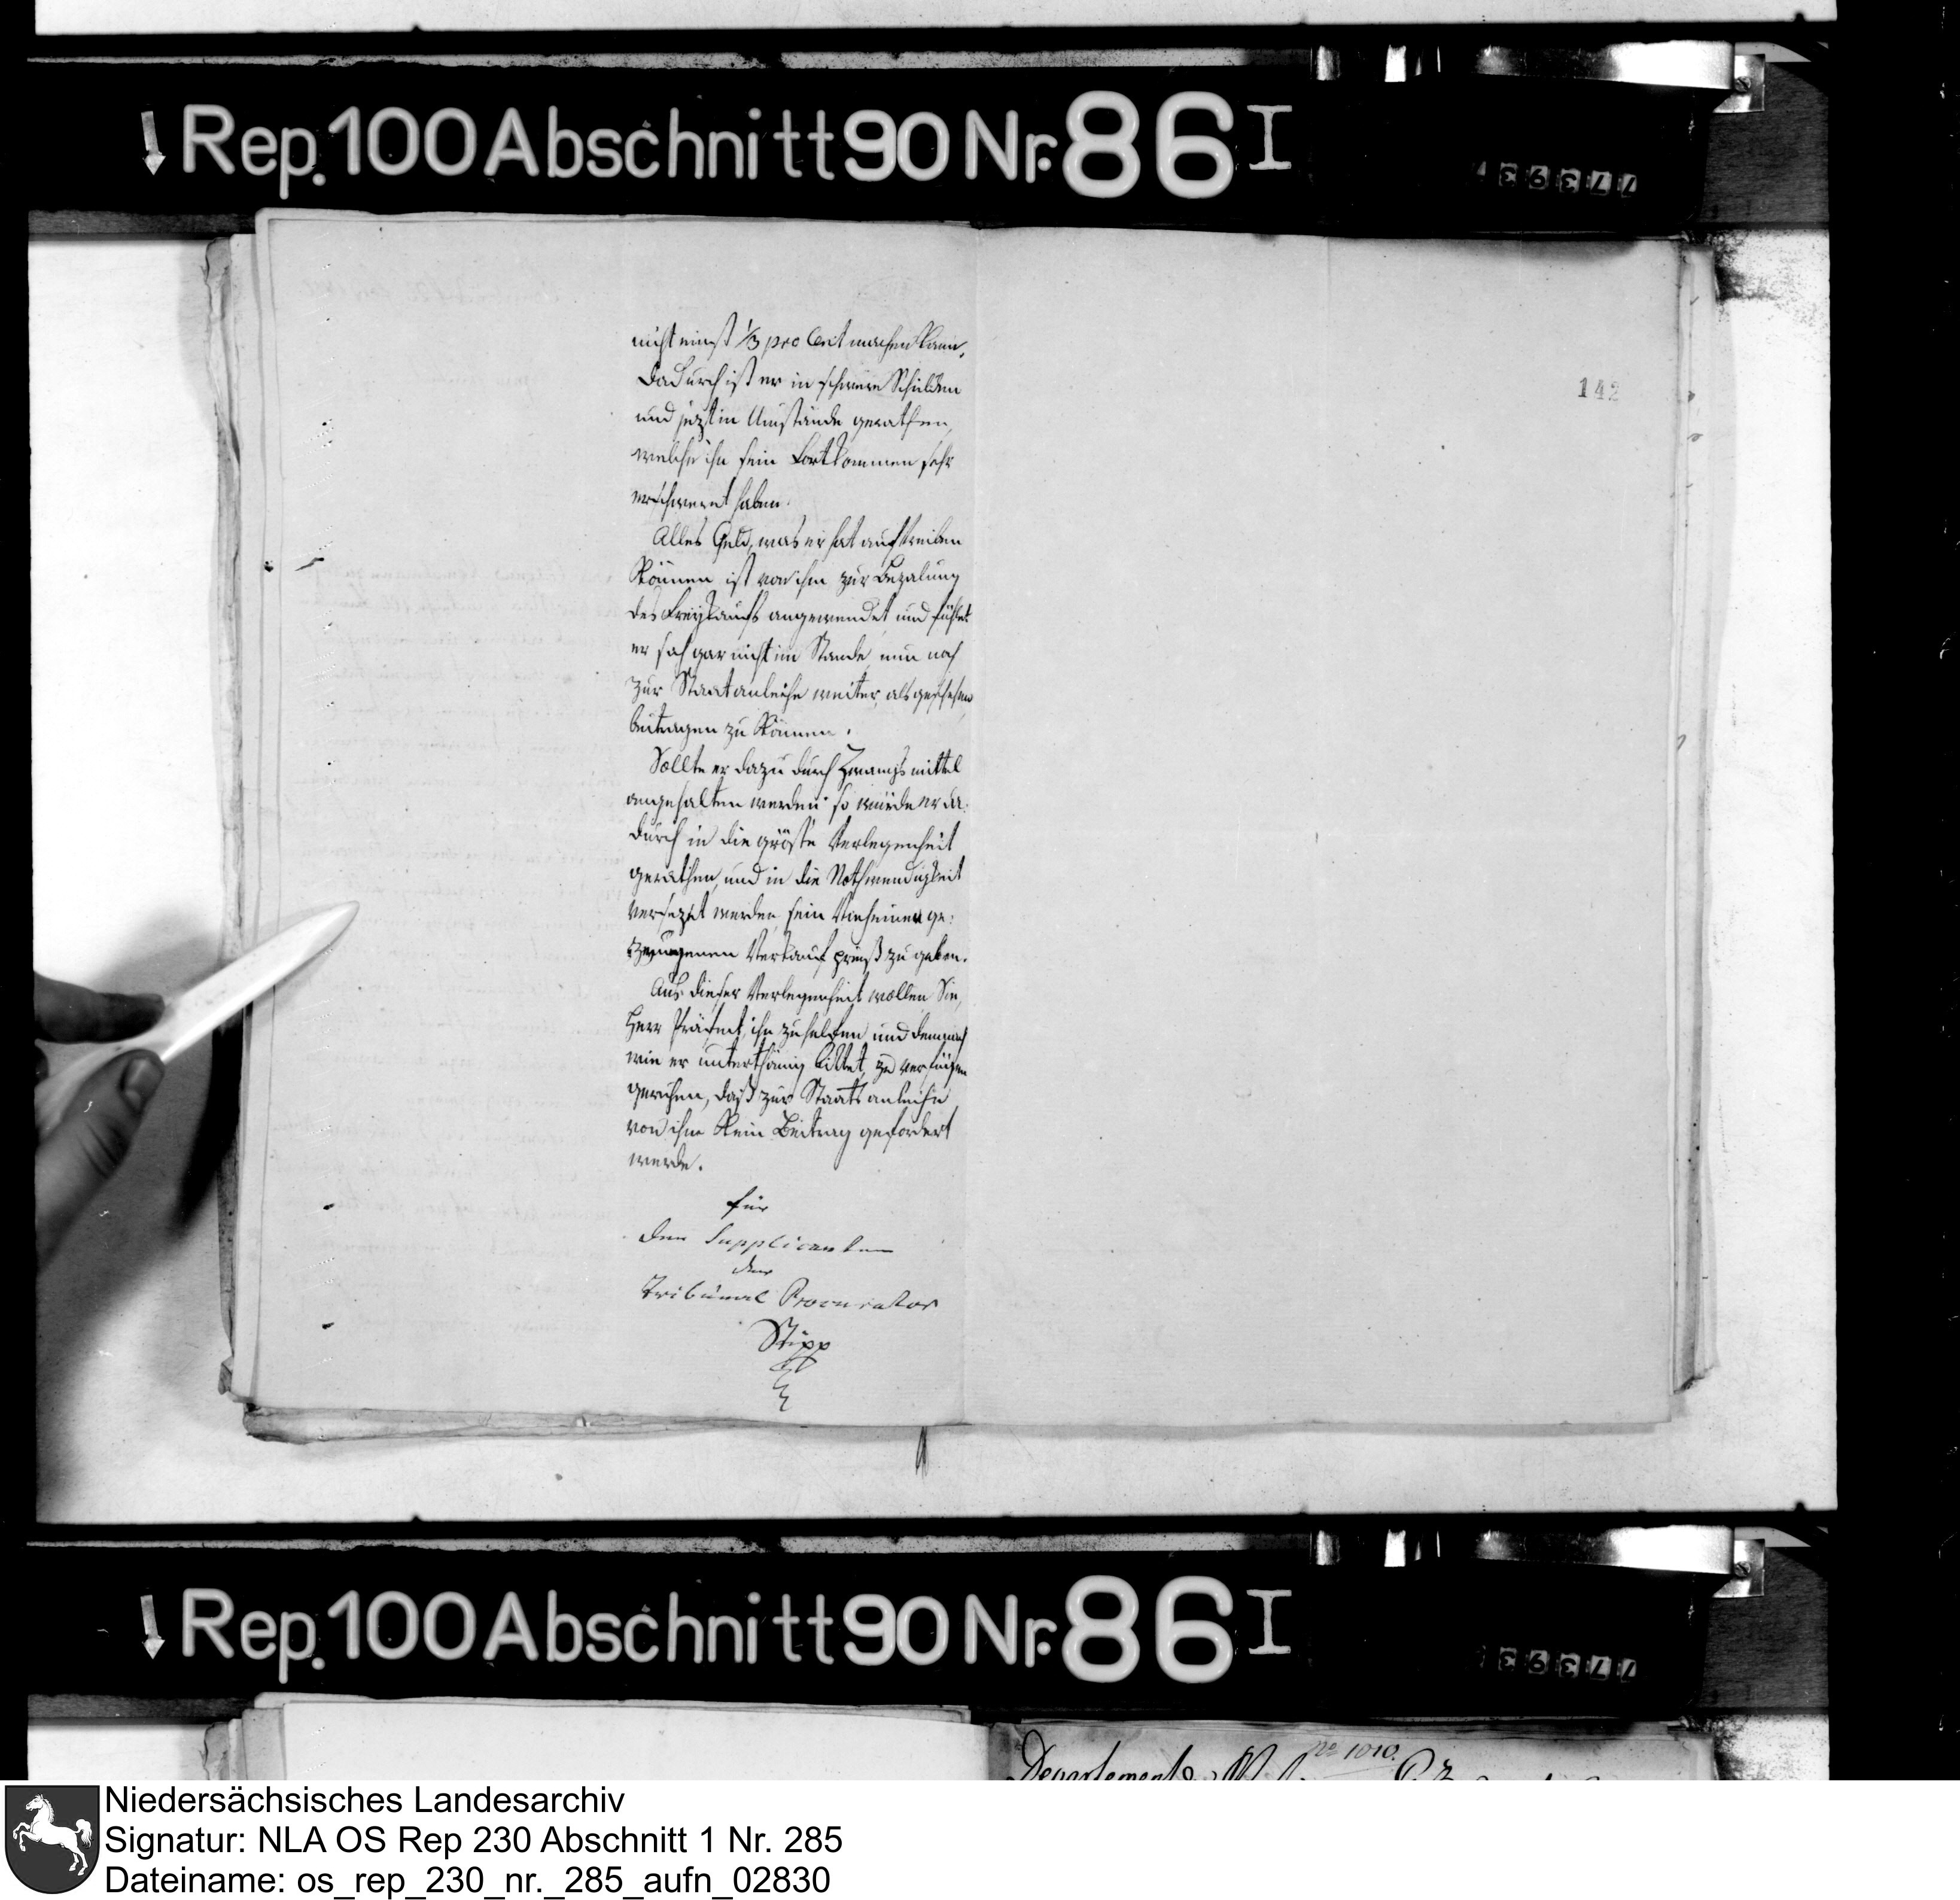 Rep. 100 Abschnitt 90 Nr. 86 I
142
nicht einst 1/3 pro Cent machen kann.
Dadurch ist er in schwere Schulden
und jezt in Umstände gerathen,
welche ihn sein Fortkommen sehr
erschwert haben.
Alles Geld, was er hat auftreiben
können ist von ihm zur Bezalung
des Freykaufs angewendet und fühlet
er sich gar nicht im Stande nun noch
zur Staatanleihe weiter, als geschehen
beitragen zu können.
Sollte er dazu durch Zwangsmittel
angehalten werden so würde er da-
durch in die gröste Verlegenheit
gerathen, und in die Nothwendigkeit
versezt werden, sein ge-
zwungenen Verkauf preiß zu geben.
Aus dieser Verlegenheit wollen Sie,
Herr Präfect, ihn zu helfen und demnach
wie er unterthänig bittet, zu verfügen
geruhen, daß zur Staatsanleihe
von ihm kein Beitrag gefordert
werde.
für
den Supplicanten
der
Tribunal Procurator
Stipp
Rep. 100 Abschnitt 90 Nr. 86 I
No 1010.
Departement
Niedersächsisches Landesarchiv
Signatur: NLA OS Rep 230 Abschnitt 1 Nr. 285
Dateiname: os_rep_230_nr._285_aufn_02830